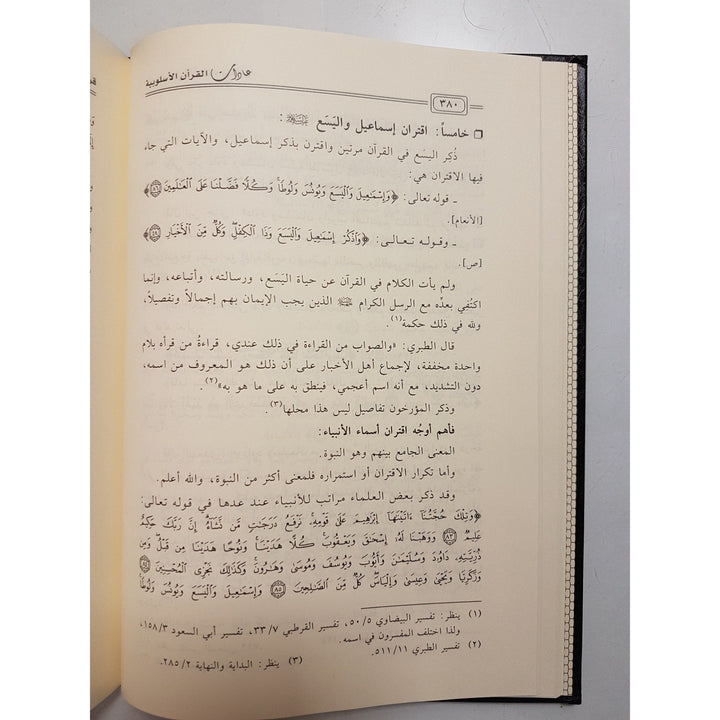 عادات القرآن الأسلوبية
٣٨٠
خامساً: اقتران إسماعيل واليَسَع ﷺ:
ذُكِر اليسَع في القرآن مرتين واقترن بذكر إسماعيل، والآيات التي جاء
فيها الاقتران هي:
ـ قوله تعالى: ﴿وَإِسْمَٰعِيلَ وَٱلْيَسَعَ وَيُونُسَ وَلُوطًا وَكُلًّا فَضَّلْنَا عَلَى ٱلْعَٰلَمِينَ ٨٦﴾
[الأنعام].
ـ وقوله تعالى: ﴿وَٱذْكُرْ إِسْمَٰعِيلَ وَٱلْيَسَعَ وَذَا ٱلْكِفْلِ وَكُلٌّ مِّنَ ٱلْأَخْيَارِ ٤٨﴾
[ص].
ولم يأت الكلام في القرآن عن حياة اليَسَع، ورسالته، وأتباعه، وإنما
اكتُفي بعدِّه مع الرسل الكرام ﷺ الذين يجب الإيمان بهم إجمالاً وتفصيلاً،
ولله في ذلك حكمة(١).
قال الطبري: «والصواب من القراءة في ذلك عندي، قراءةُ من قرأه بلام
واحدة مخففة، لإجماع أهل الأخبار على أن ذلك هو المعروف من اسمه،
دون التشديد، مع أنه اسم أعجمي، فينطق به على ما هو به»(٢).
وذكر المؤرخون تفاصيل ليس هذا محلها(٣).
فأهم أوجُه اقتران أسماء الأنبياء:
المعنى الجامع بينهم وهو النبوة.
وأما تكرار الاقتران أو استمراره فلمعنى أكثر من النبوة، والله أعلم.
وقد ذكر بعض العلماء مراتب للأنبياء عند عدها في قوله تعالى:
﴿وَتِلْكَ حُجَّتُنَآ ءَاتَيْنَٰهَآ إِبْرَٰهِيمَ عَلَىٰ قَوْمِهِۦ نَرْفَعُ دَرَجَٰتٍ مَّن نَّشَآءُ إِنَّ رَبَّكَ حَكِيمٌ
عَلِيمٌ ٨٣ وَوَهَبْنَا لَهُۥٓ إِسْحَٰقَ وَيَعْقُوبَ كُلًّا هَدَيْنَا وَنُوحًا هَدَيْنَا مِن قَبْلُ وَمِن
ذُرِّيَّتِهِۦ دَاوُۥدَ وَسُلَيْمَٰنَ وَأَيُّوبَ وَيُوسُفَ وَمُوسَىٰ وَهَٰرُونَ وَكَذَٰلِكَ نَجْزِى ٱلْمُحْسِنِينَ ٨٤
وَزَكَرِيَّا وَيَحْيَىٰ وَعِيسَىٰ وَإِلْيَاسَ كُلٌّ مِّنَ ٱلصَّٰلِحِينَ ٨٥ وَإِسْمَٰعِيلَ وَٱلْيَسَعَ وَيُونُسَ وَلُوطًا
(١) ينظر: تفسير البيضاوي ٥/ ٥٠، تفسير القرطبي ٧/ ٣٣، تفسير أبي السعود ٣/ ١٥٨،
ولذا اختلف المفسرون في اسمه.
(٢) تفسير الطبري ١١/ ٥١١.
(٣) ينظر: البداية والنهاية ٢/ ٢٨٥.